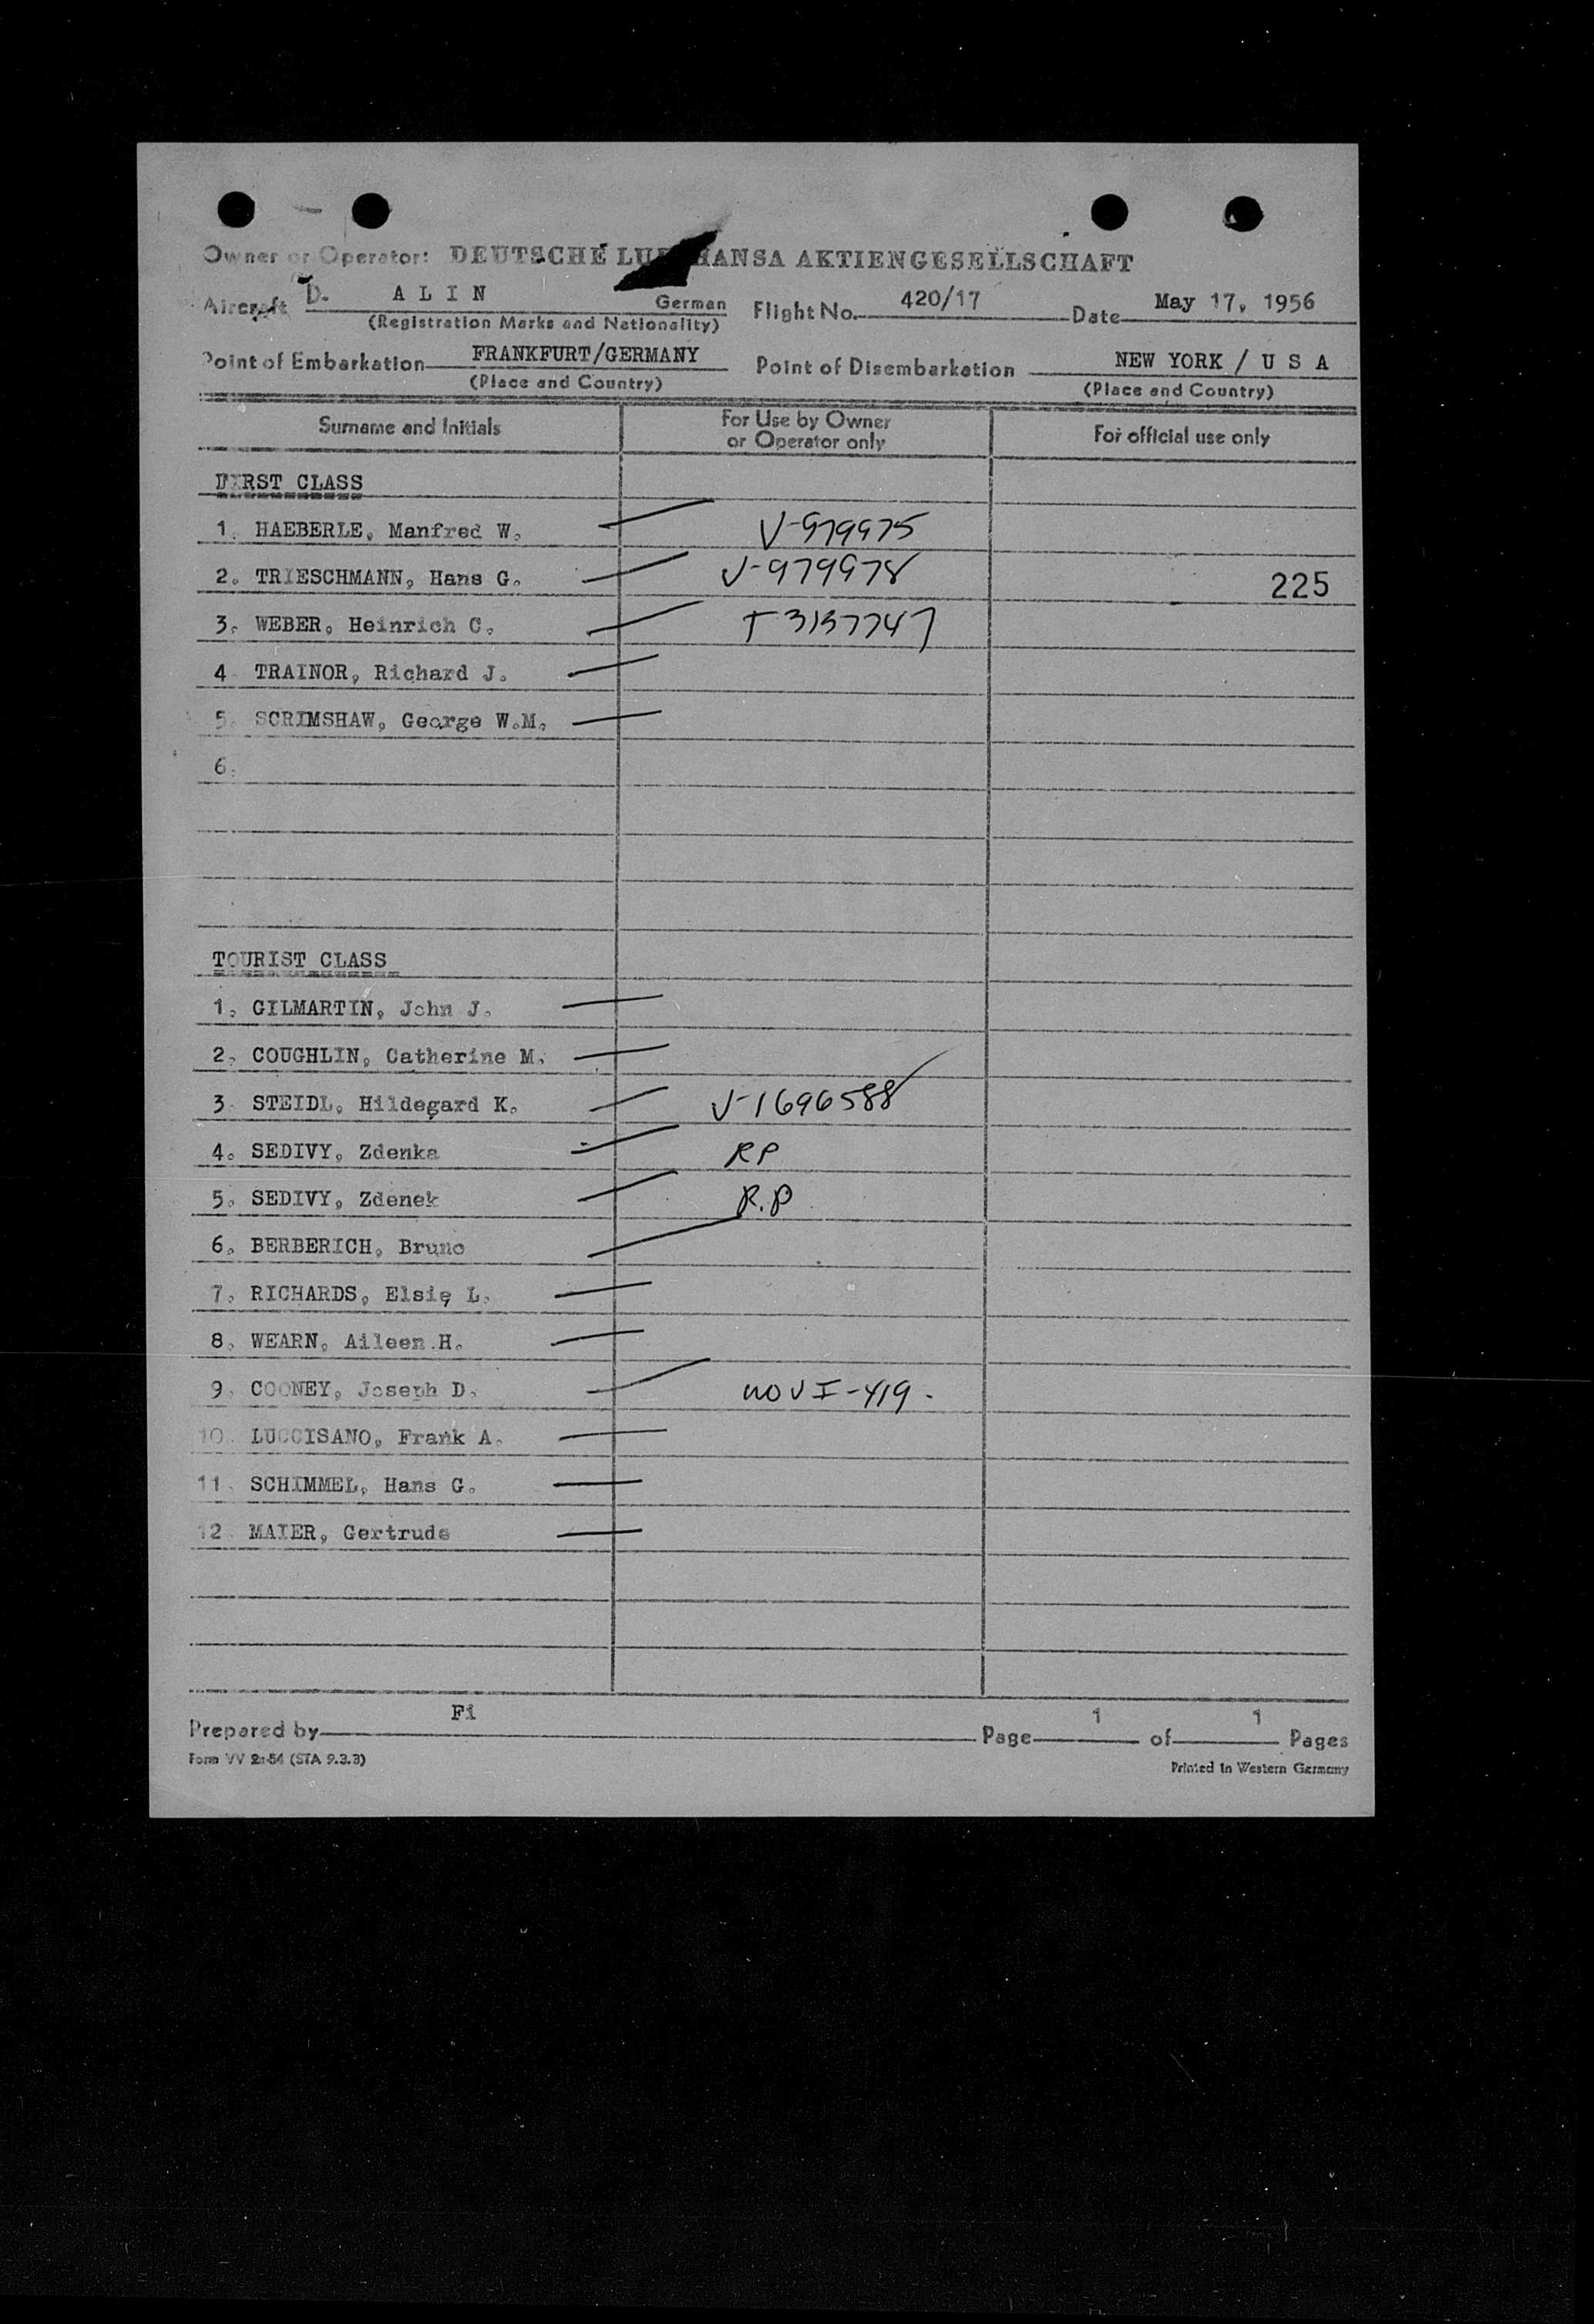 Owner or Operator: DEUTSCHE LUFTHANSA AKTIENGESELLSCHAFT
Aircraft D. A L I N German Flight No. 420/17 Date May 17, 1956
(Registration Marks and Nationality)
Point of Embarkation FRANKFURT/GERMANY Point of Disembarkation NEW YORK / U S A
(Place and Country) (Place and Country)
Surname and Initials For Use by Owner or Operator only For official use only
FIRST CLASS
1. HAEBERLE, Manfred W. V-979975
2. TRIESCHMANN, Hans G. V-979978 225
3. WEBER, Heinrich C.
4 TRAINOR, Richard J.
5. SCRIMSHAW, George W.M.
6.
TOURIST CLASS
1. GILMARTIN, John J.
2. COUGHLIN, Catherine M.
3 STEIDL, Hildegard K. V-1696588
4. SEDIVY, Zdenka RP
5. SEDIVY, Zdenek R.P
6. BERBERICH, Bruno
7. RICHARDS, Elsie L.
8. WEARN, Aileen H.
9. COONEY, Joseph D.
10. LUCCISANO, Frank A.
11. SCHIMMEL, Hans G.
12 MAIER, Gertrude
Fi
Prepared by Page 1 of 1 Pages
Form VV 2a-54 (STA 9.3.3) Printed in Western Germany